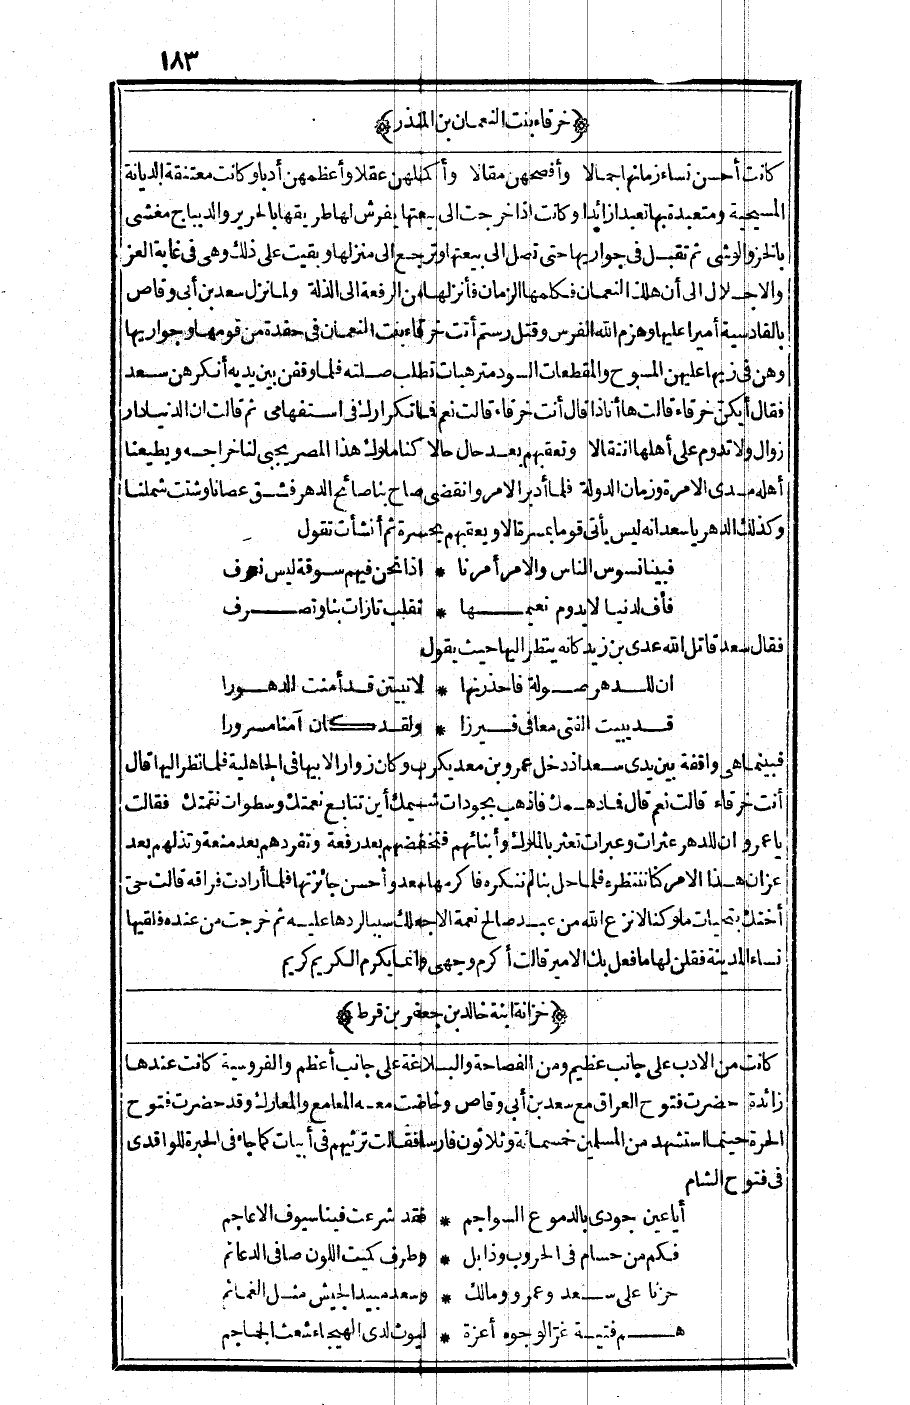 ١٨٣
﴿خرقاء بنت النعمان بن المنذر﴾
كانت أحسن نساء زمانها جمالا وأفصحهن مقالا وأكملهن عقلا وأعظمهن أدبا وكانت معتنقة الديانة
المسيحية ومتعبدة بها تعبدا زائدا وكانت اذا خرجت الى بيعتها يفرش لها طريقها بالحرير والديباج مغشى
بالخز والوشى ثم تقبل فى جواريها حتى تصل الى بيعتها وترجع الى منزلها وبقيت على ذلك وهى فى غاية العز
والاجلال الى أن هلك النعمان فكلمها الزمان فأنزلها من الرفعة الى الذلة ولما نزل سعد بن أبى وقاص
بالقادسية أميرا عليها وهزم الله الفرس وقتل رستم أتت خرقاء بنت النعمان فى حفدة من قومها وجواريها
وهن فى زيها عليهن المسوح والمقطعات السود مترهبات تطلب صلته فلما وقفن بين يديه أنكرهن سعد
فقال أيكن خرقاء قالت ها أناذا قال أنت خرقاء قالت نعم فما تكرارك فى استفهامى ثم قالت ان الدنيا دار
زوال ولا تدوم على أهلها انتقالا وتعقبهم بعد حال حالا كنا ملوك هذا المصر يجبى لنا خراجه ويطيعنا
أهله مدى الامرة وزمان الدولة فلما أدبر الامر وانقضى صاح بنا صائح الدهر فشق عصانا وشتت شملنا
وكذلك الدهر يا سعد انه ليس يأتى قوما بمسرة الا ويعقبهم بحسرة ثم أنشأت تقول
فبينا نسوس الناس والامر أمرنا * اذا نحن فيهم سوقة ليس نعرف
فأف لدنيا لا يدوم نعيمها * تقلب تارات بنا وتصرف
فقال سعد قاتل الله عدى بن زيد كانه ينظر اليها حيث يقول
ان للدهر صولة فاحذرنها * لا تبيتن قد أمنت الدهورا
قد يبيت الفتى معافى فيرزا * ولقد كان آمنا مسرورا
فبينما هى واقفة بين يدى سعد اذ دخل عمرو بن معد يكرب وكان زوارا لابيها فى الجاهلية فلما نظر اليها قال
أنت خرقاء قالت نعم قال فما دهمك فاذهب بجودات شيمك أين تتابع نعمتك وسطوات نقمتك فقالت
يا عمرو ان للدهر عثرات وعبرات تعثر بالملوك وأبنائهم فتخفضهم بعد رفعة وتفردهم بعد منعة وتذلهم بعد
عز ان هذا الامر كنا ننتظره فلما حل بنا لم ننكره فاكرمها سعد وأحسن جائزتها فلما أرادت فراقه قالت حتى
أحييك بتحيات ملوكنا لا نزع الله من عبد صالح نعمة الا جعلك سببا لردها عليه ثم خرجت من عنده فلقيها
نساء المدينة فقلن لها ما فعل بك الامير قالت أكرم وجهى وانما يكرم الكريم كريم
﴿خزانة ابنة خالد بن جعفر بن قرط﴾
كانت من الادب على جانب عظيم ومن الفصاحة والبلاغة على جانب أعظم والفروسية كانت عندها
زائدة حضرت فتوح العراق مع سعد بن أبى وقاص وخاضت معه المعامع والمعارك وقد حضرت فتوح
الحرة حينما استشهد من المسلمين خمسمائة وثلاثون فارسا فقالت ترثيهم فى أبيات كما جاء فى الحبرة للواقدى
فى فتوح الشام
أيا عين جودى بالدموع السواجم * فقد شرعت فينا سيوف الاعاجم
فكم من حسام فى الحروب وذابل * وطرف كميت اللون صافى الدعائم
حزنا على سعد وعمرو ومالك * وسعد مبيد الجيش مثل الغمائم
هم فتية غر الوجوه أعزة * ليوث لدى الهيجاء شعث الجماجم